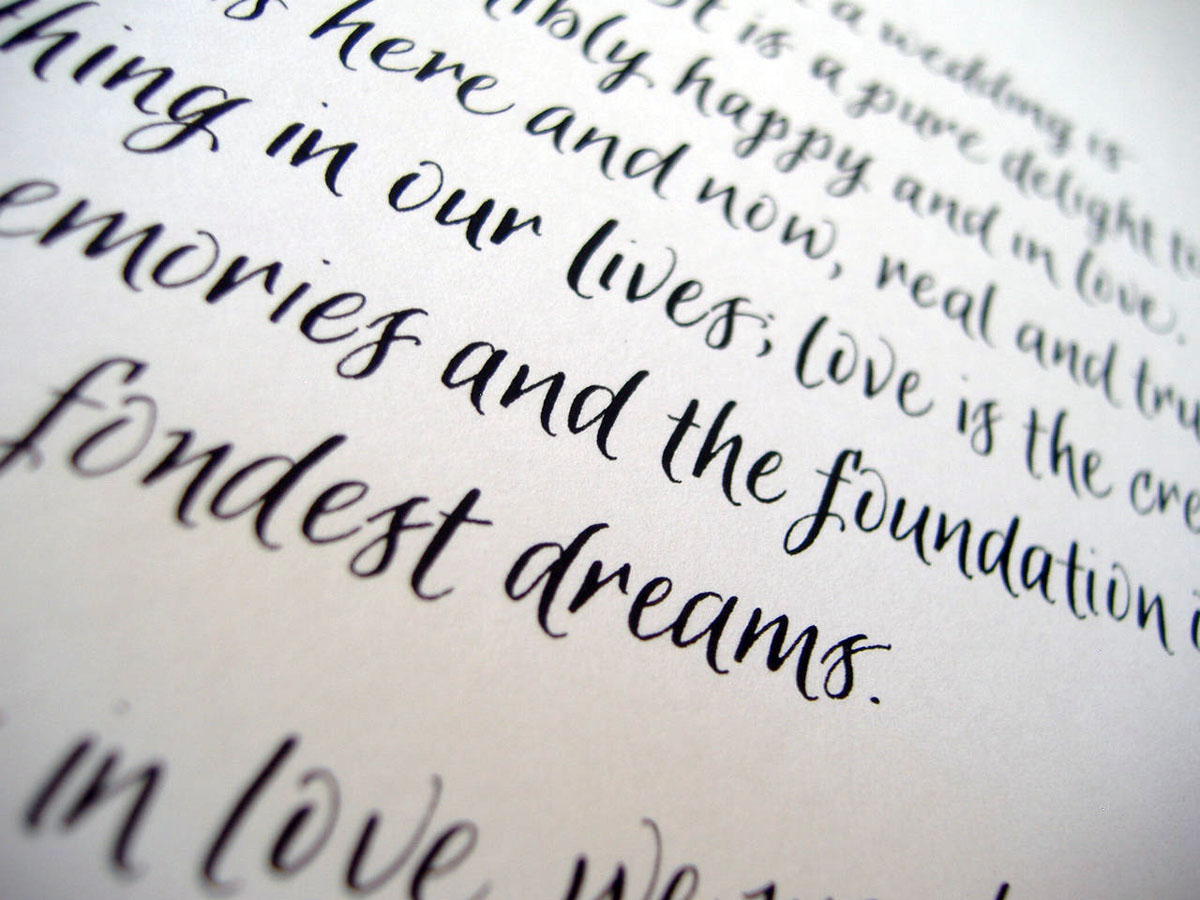 a wedding is
it is a pure delight to
happy and in love.
here and now, real and
thing in our lives; love is the
emories and the foundation
fondest dreams.
in love we